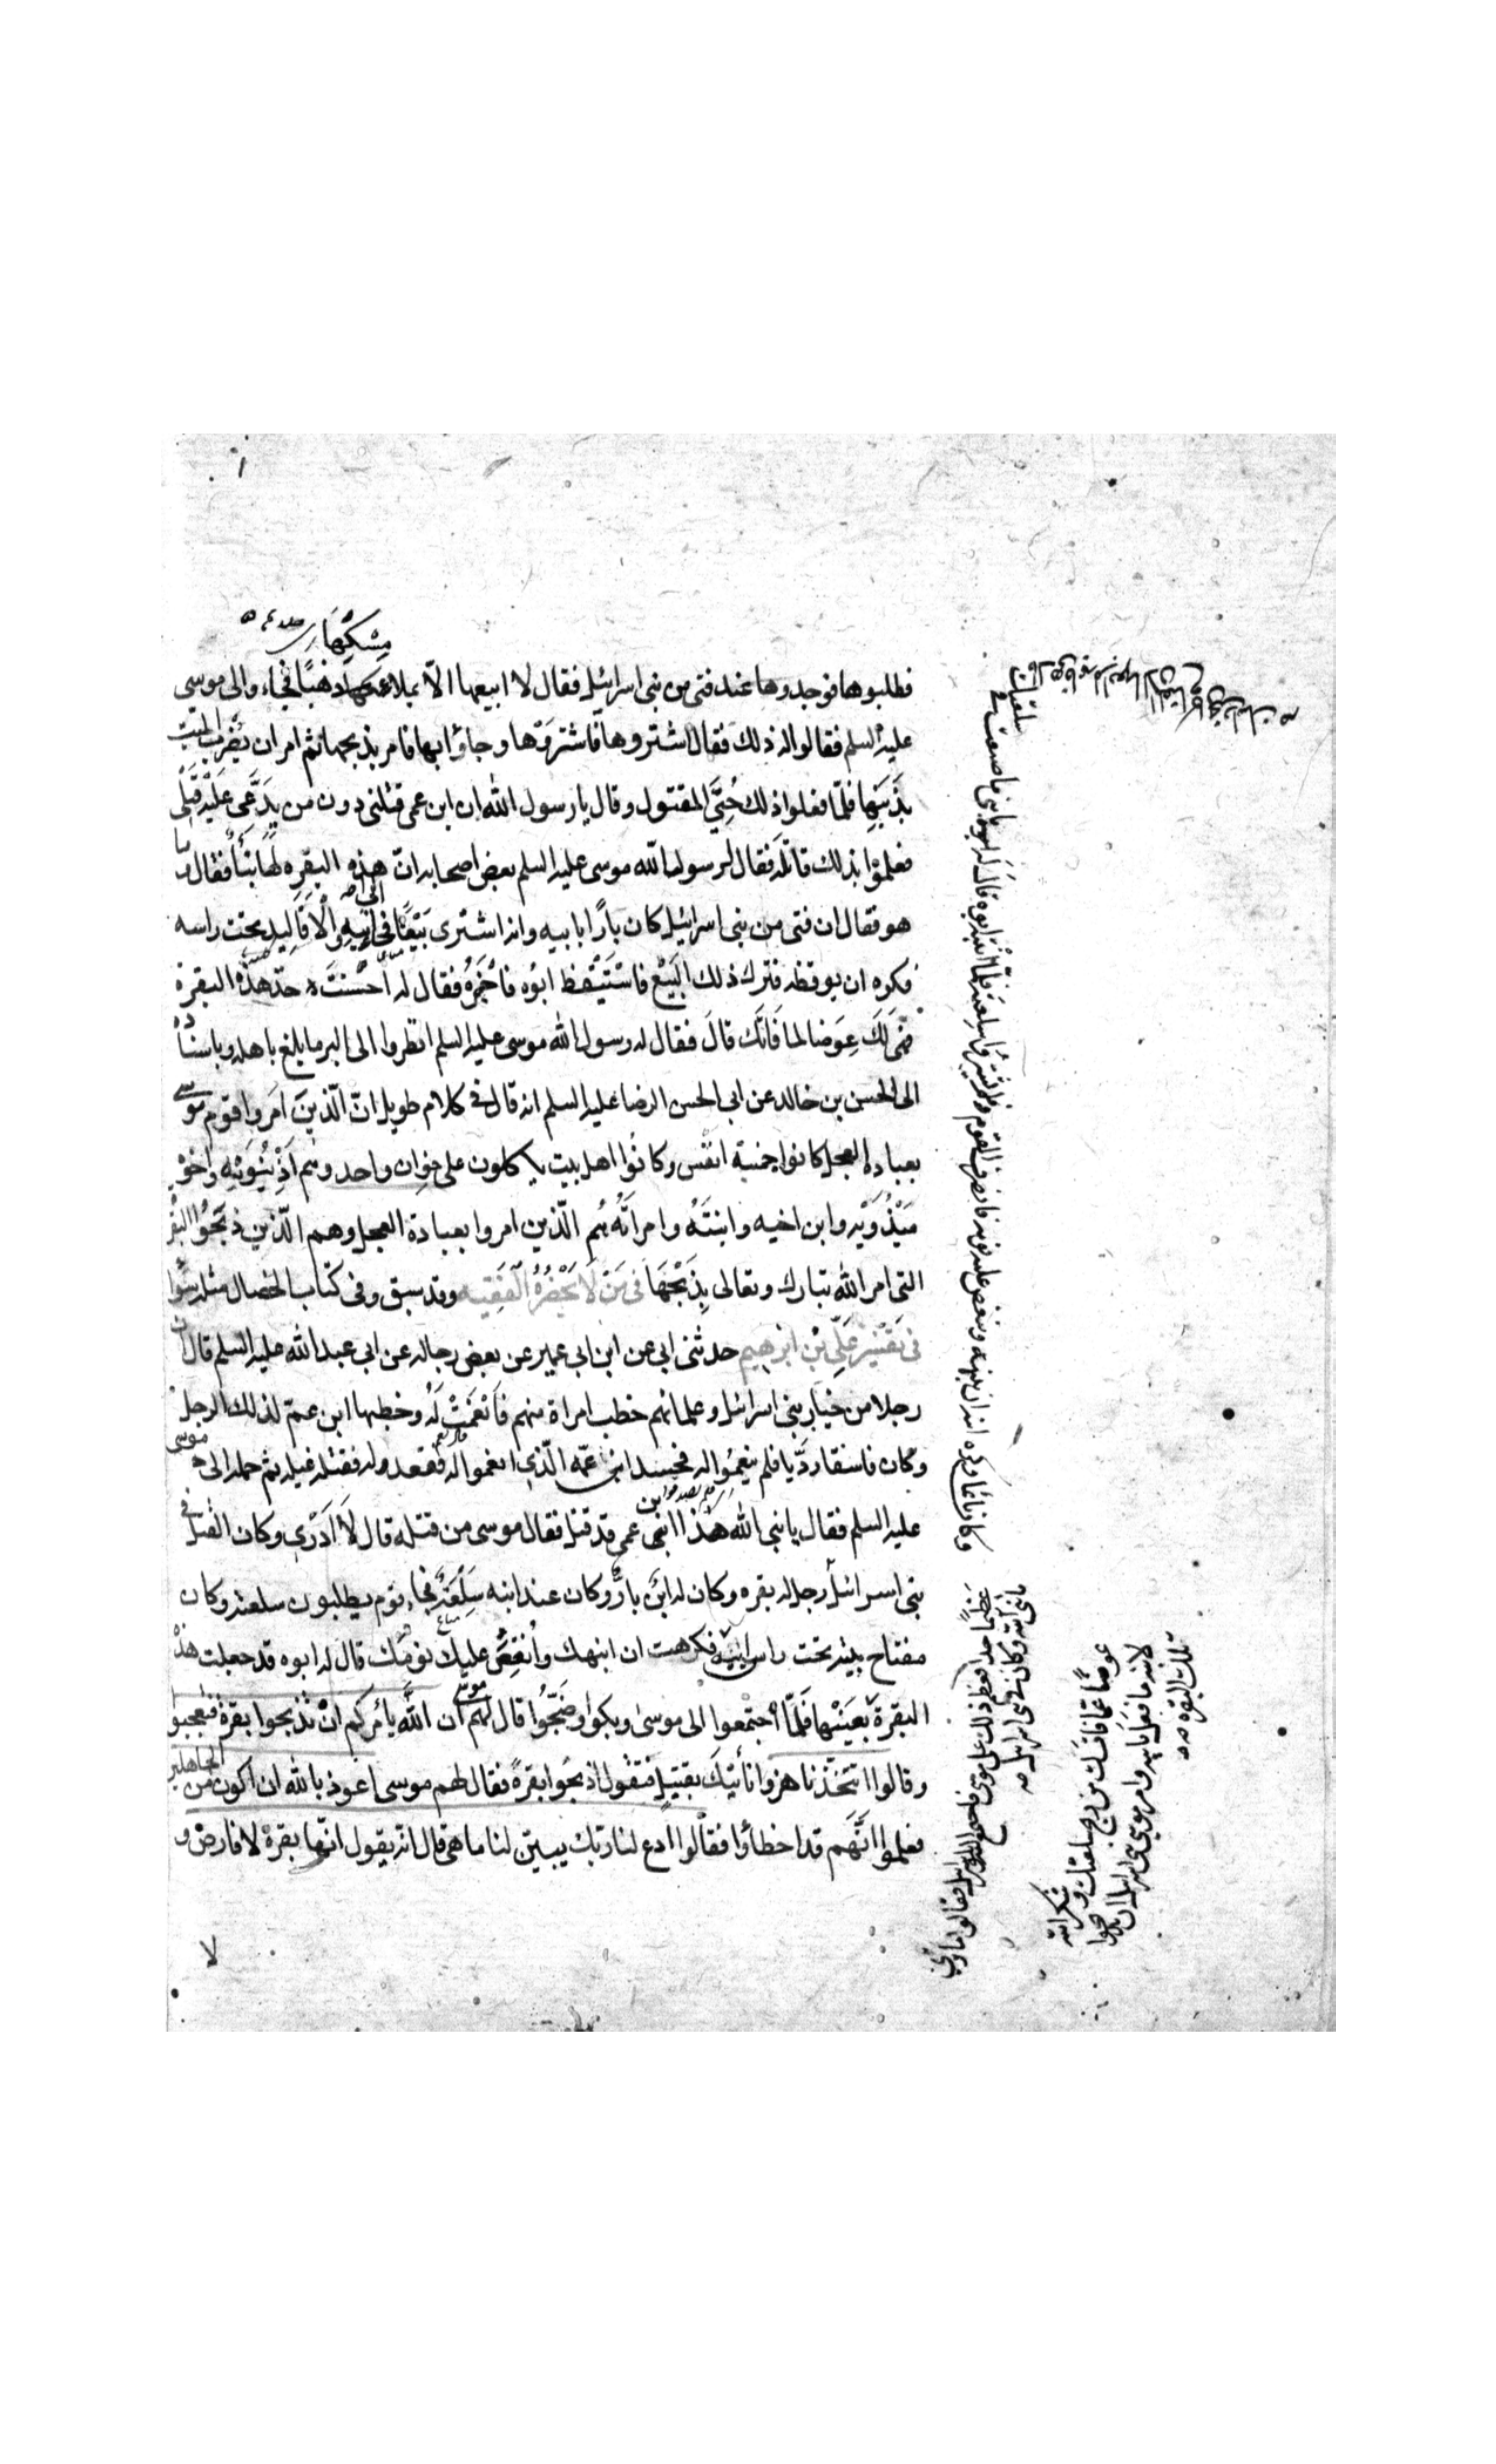 مسكها
فطلبوها فوجدوها عند فتى من بنى اسرائيل فقال لا ابيعها الا بملاء ذهبا فجاءوا الى موسى
عليه السلم فقالوا له ذلك فقال اشتروها فاشتروها وجاؤا بها فامر بذبحها ثم امر ان يضرب الميت
بذنبها فلما فعلوا ذلك حيى المقتول وقال يا رسول الله ان ابن عمى قتلنى دون من يدعى عليه قتلى
فعلموا بذلك قاتله فقال لرسول الله موسى عليه السلم بعض اصحابه ان هذه البقره لها نبأ فقال وما
هو فقال ان فتى من بنى اسرائيل كان بارا بابيه وانه اشترى بيعا فجاء الى ابيه والاقاليد تحت راسه
فكره ان يوقظه فترك ذلك البيع فاستيقظ ابوه فاخبره فقال له احسنت خذ هذه البقرة
فهى لك عوضا لما فاتك قال فقال له رسول الله موسى عليه السلم انظروا الى البر ما بلغ باهله وباسناده
الى الحسن بن خالد عن ابى الحسن الرضا عليه السلم انه قال فى كلام طويل ان الذين امروا قوم موسى
بعبادة العجل كانوا خمسة انفس وكانوا اهل بيت ياكلون على خوان واحد وهم اذينونه واخوه
ميذويه وابن اخيه وابنته وامراته هم الذين امروا بعبادة العجل وهم الذين ذبحوا البقرة
التى امر الله تبارك وتعالى بذبحها فى من لا يحضره الفقيه وقد سبق وفى كتاب الخصال مثله سوا
فى تفسير على بن ابرهيم حدثنى ابى عن ابن ابى عمير عن بعض رجاله عن ابى عبد الله عليه السلم قال ان
رجلا من خيار بنى اسرائيل وعلمائهم خطب امراة منهم فانعمت له وخطبها ابن عم لذلك الرجل
وكان فاسقا رديا فلم ينعموا له فحسد ابن عمه الذى انعموا له فقعد له فقتله غيلة ثم حمله الى موسى
عليه السلم فقال يا نبى الله هذا ابن عمى قد قتل فقال موسى من قتله قال لا ادرى وكان القتل فى
بنى اسرائيل رجل له بقره وكان له ابن بار وكان عند ابنه سلعة فجاء قوم يطلبون سلعته وكان
مفتاح بيته تحت راس ابيه فكرهت ان انبهك وانغص عليك نومك قال له ابوه قد جعلت هذه
البقرة بعينها فلما اجتمعوا الى موسى وبكوا وضجوا قال لهم موسى ان الله يأمركم ان تذبحوا بقرة فتعجبوا
وقالوا اتتخذنا هزوا نأتيك بقتيل فتقول اذبحوا بقرة فقال لهم موسى اعوذ بالله ان اكون من الجاهلين
فعلموا انهم قد اخطأوا فقالوا ادع لنا ربك يبين لنا ما هى قال انه يقول انها بقرة لا فارض و
لا
وكان نائما وكره ابنه ان ينبهه وينغص عليه نومه فانصرف القوم ولم يشتروا سلعته فلما انتبه ابوه قال له يا بنى ما صنعت فى سلعتك
عظيما جدا فعظم ذلك على موسى فاجتمع اليه بنو اسرائيل فقالوا ما ترى
يا نبى الله وكان فى بنى اسرائيل
عوضا عما فاتك من ربح سلعتك وشكر الله
لابنه ما فعل بابيه وامر موسى بنى اسرائيل ان يذبحوا
تلك البقرة